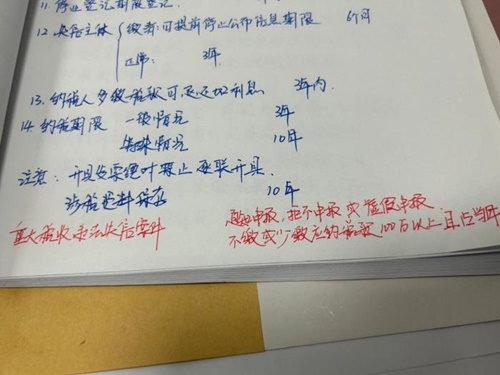 11. 停业登记期限登记.
12. 失信主体 { 缴清可提前停止公布信息期限 6个月
正常: 3年
13. 纳税人多缴税款可退还加利息 3年内.
14. 纳税期限 一般情况 3年
特殊情况 10年
注意: 开具发票 禁止 联开具.
涉税资料保存 10年
重大税收违法失信案件
通知申报, 拒不申报 或 虚假申报.
不缴或少缴应纳税款 100万以上 且占当年